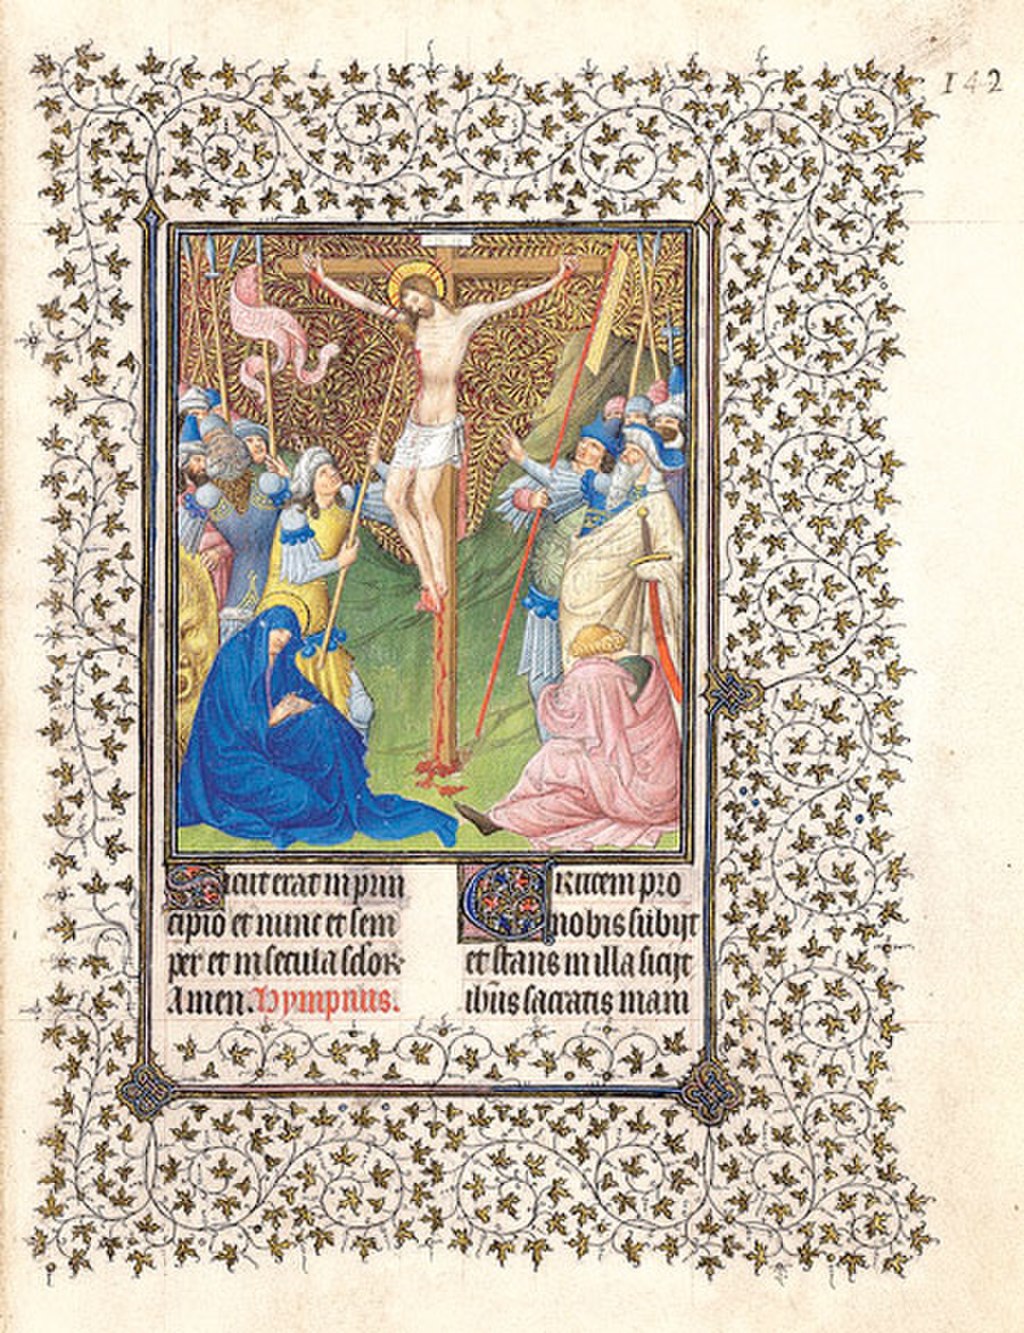 142
Sicut erat in prin
cipio et nunc et sem
per et in secula sclor
Amen. Hympnus.
Crucem pro
nobis subiit
et stans in illa siciit
ihus sacratis mani